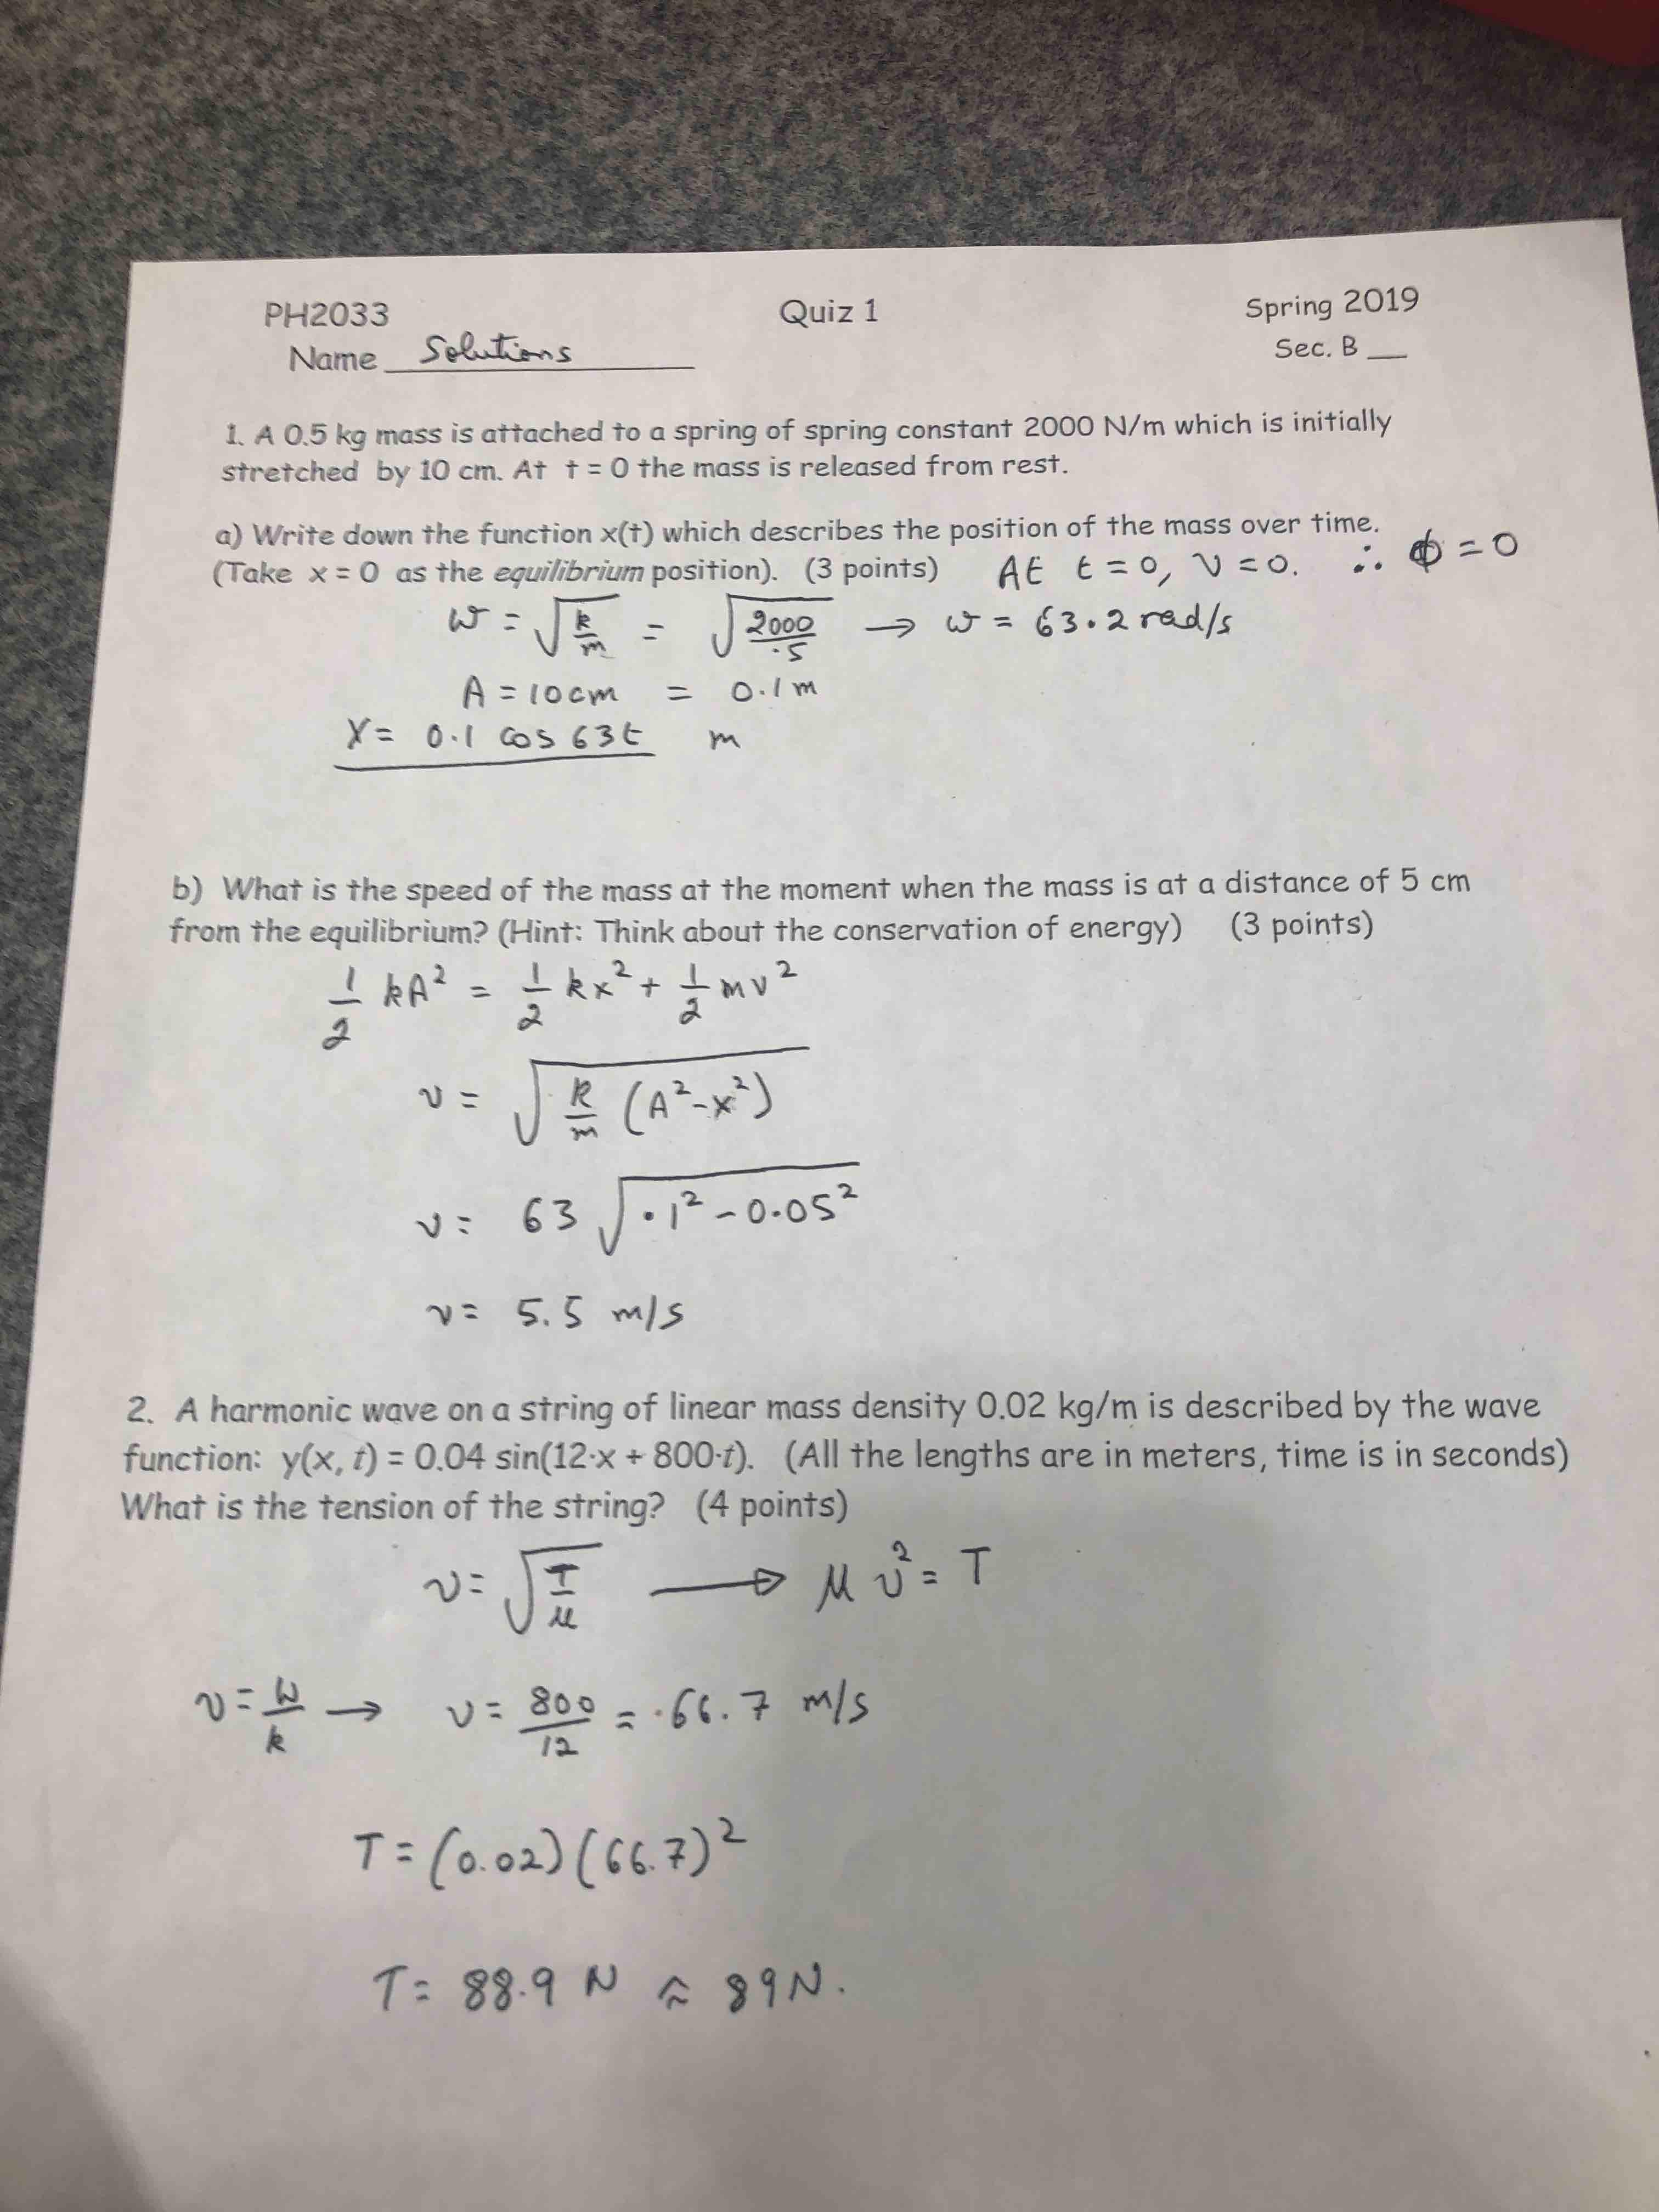 PH2033 Quiz 1 Spring 2019
Name Solutions Sec. B __
1. A 0.5 kg mass is attached to a spring of spring constant 2000 N/m which is initially
stretched by 10 cm. At t = 0 the mass is released from rest.
a) Write down the function x(t) which describes the position of the mass over time.
(Take x = 0 as the equilibrium position). (3 points) At t = 0, v = 0. ∴ ϕ = 0
ω = √(k/m) = √(2000/.5) → ω = 63.2 rad/s
A = 10cm = 0.1 m
X = 0.1 cos 63t m
b) What is the speed of the mass at the moment when the mass is at a distance of 5 cm
from the equilibrium? (Hint: Think about the conservation of energy) (3 points)
1/2 kA² = 1/2 kx² + 1/2 mv²
v = √(k/m (A²-x²))
v = 63 √(.1² - 0.05²)
v = 5.5 m/s
2. A harmonic wave on a string of linear mass density 0.02 kg/m is described by the wave
function: y(x, t) = 0.04 sin(12·x + 800·t). (All the lengths are in meters, time is in seconds)
What is the tension of the string? (4 points)
v = √(T/μ) → μ v² = T
v = ω/k → v = 800/12 = 66.7 m/s
T = (0.02)(66.7)²
T = 88.9 N ≈ 89N.